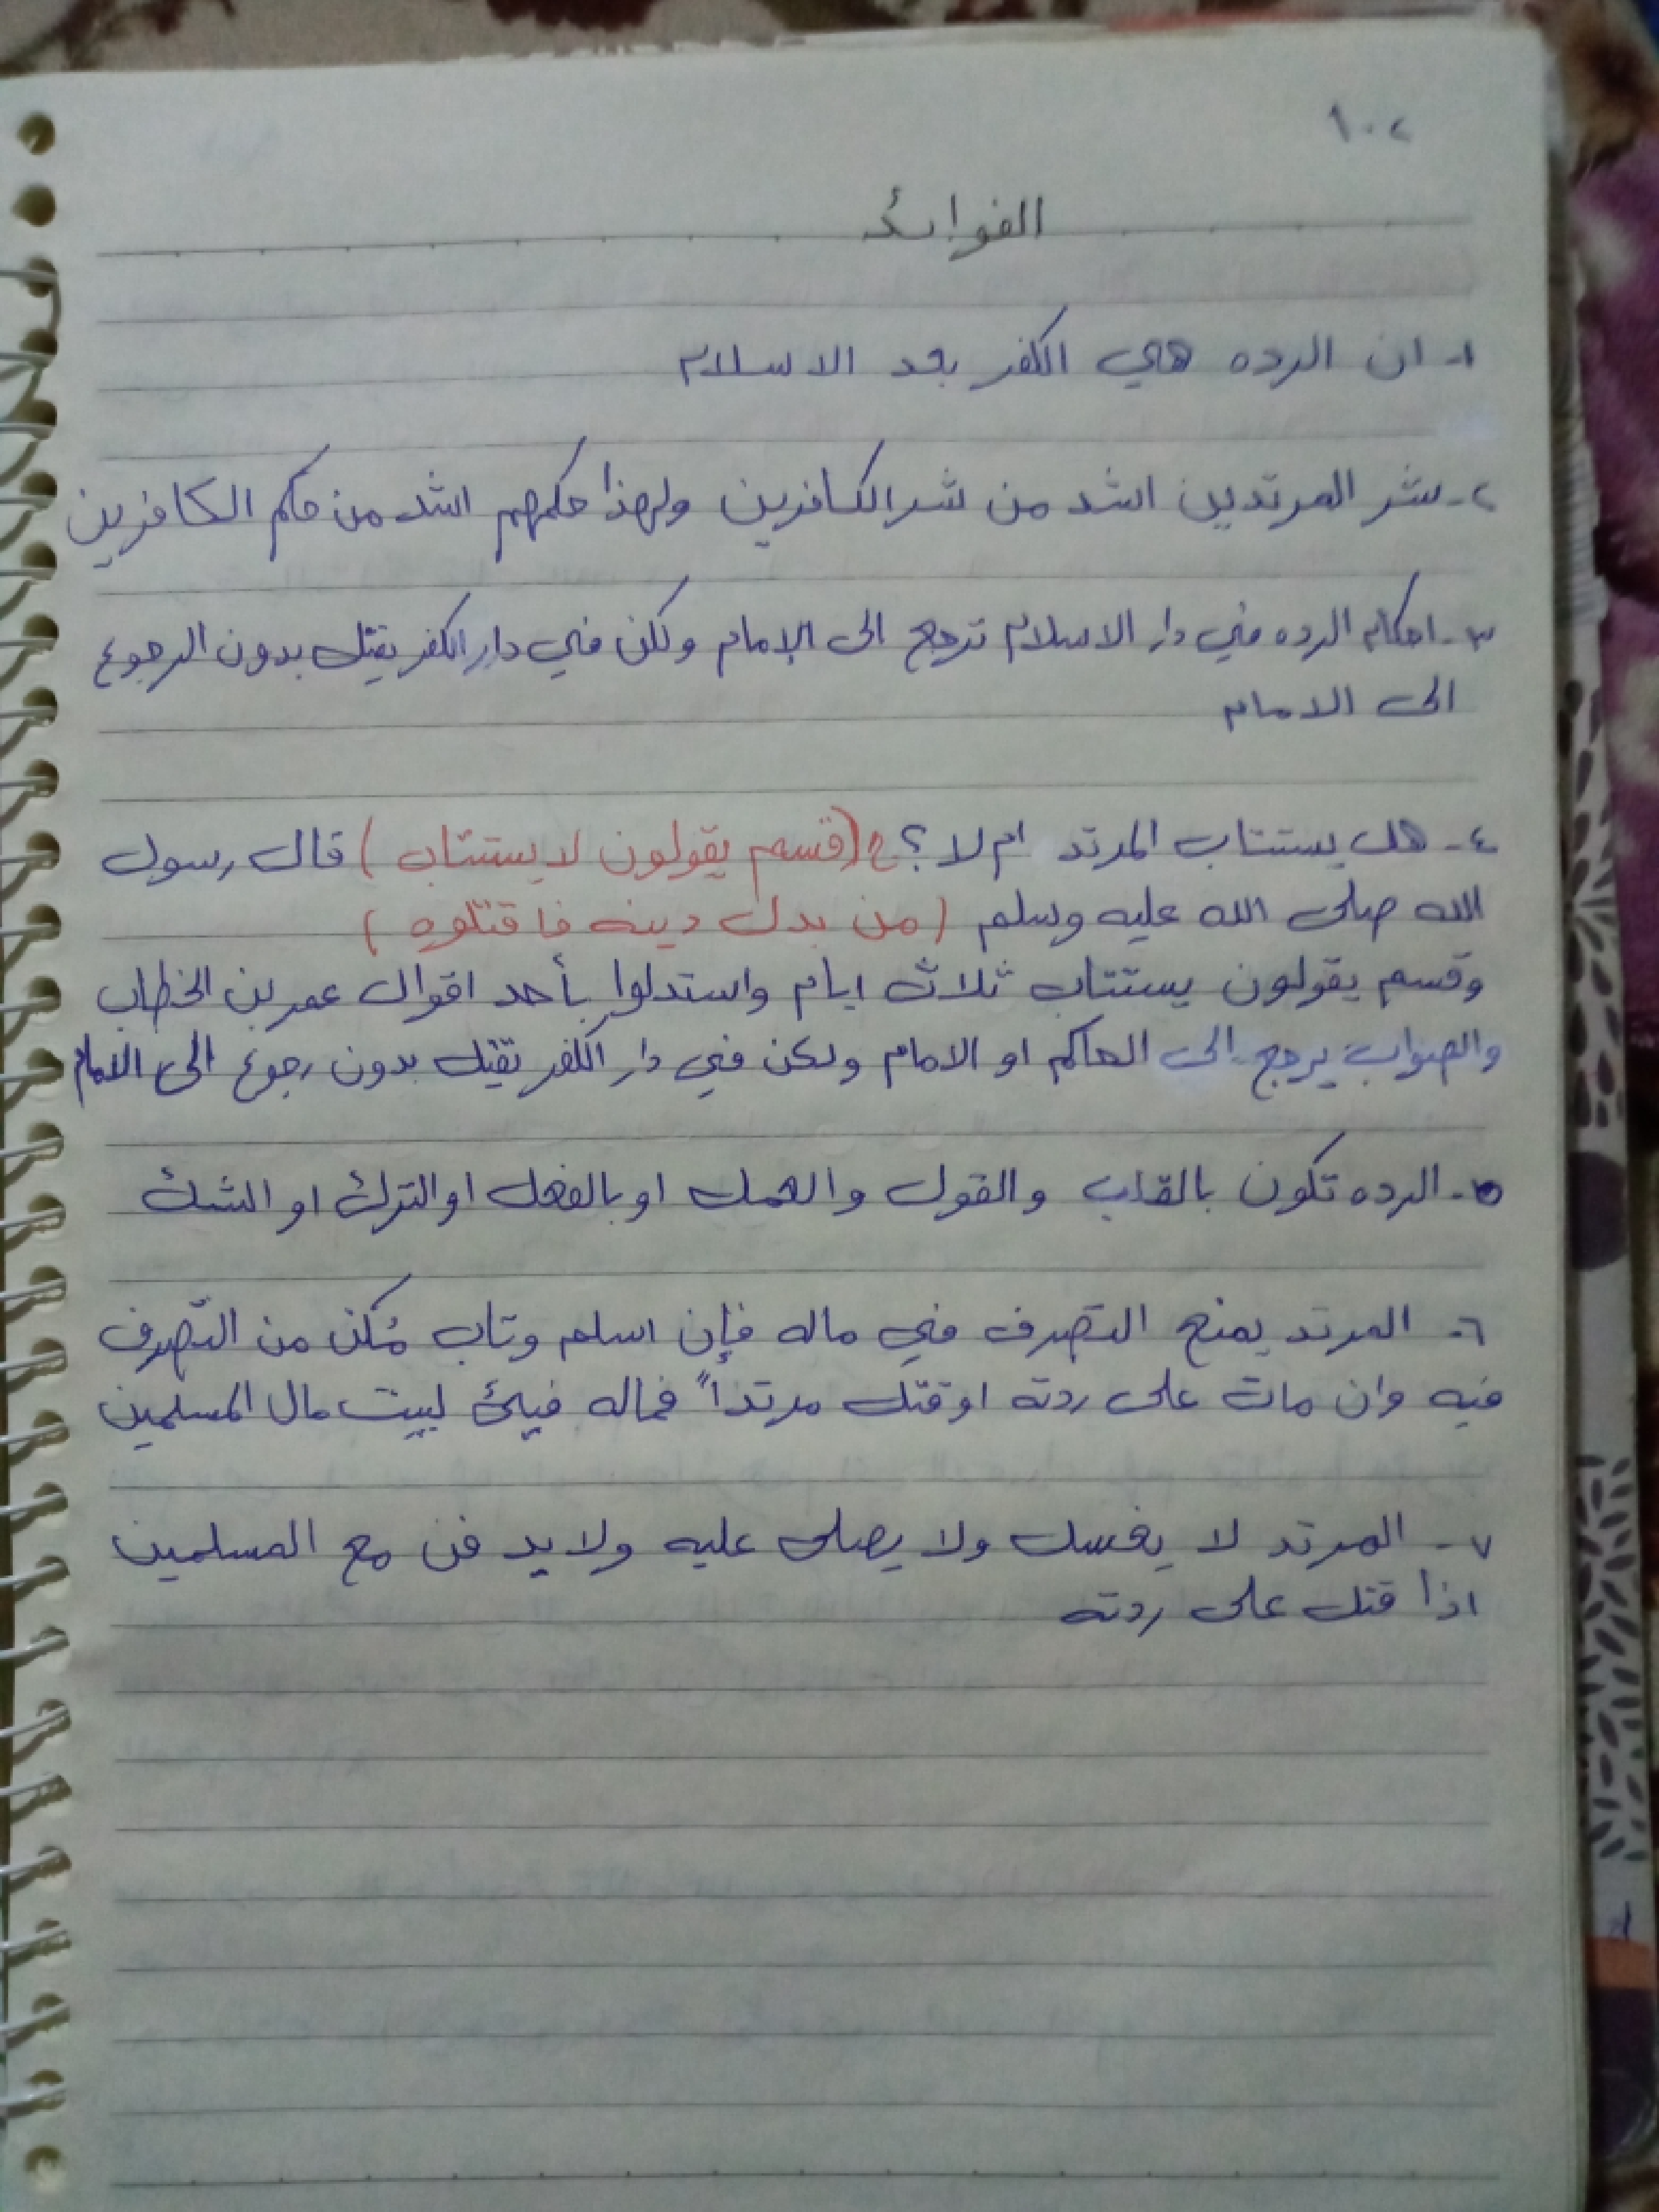 ١٠٢
الفوائد
١- ان الرده هي الكفر بعد الاسلام
٢- شر المرتدين اشد من شر الكافرين ولهذا حكمهم اشد من حكم الكافرين
٣- احكام الرده في دار الاسلام ترجع الى الإمام ولكن في دار الكفر يقتل بدون الرجوع
الى الامام
٤- هل يستتاب المرتد ام لا ؟ ج (قسم يقولون لا يستتاب) قال رسول
الله صلى الله عليه وسلم (من بدل دينه فاقتلوه)
وقسم يقولون يستتاب ثلاث ايام واستدلوا بأحد اقوال عمر بن الخطاب
والصواب يرجع الى الحاكم او الامام ولكن في دار الكفر تقتل بدون رجوع الى الامام
٥- الرده تكون بالقلب والقول والعمل او بالفعل او الترك او الشك
٦- المرتد يمنع التصرف في ماله فإن اسلم وتاب مُكن من التّصرف
فيه وان مات على ردته او قتل مرتداً فماله فيئ لبيت مال المسلمين
٧- المرتد لا يغسل ولا يصلى عليه ولا يدفن مع المسلمين
اذا قتل على ردته